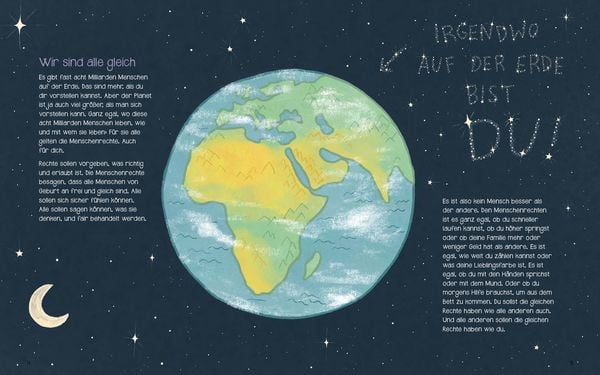 Wir sind alle gleich
Es gibt fast acht Milliarden Menschen
auf der Erde. Das sind mehr, als du
dir vorstellen kannst. Aber der Planet
ist ja auch viel größer, als man sich
vorstellen kann. Ganz egal, wo diese
acht Milliarden Menschen leben, wie
und mit wem sie leben: Für sie alle
gelten die Menschenrechte. Auch
für dich.
Rechte sollen vorgeben, was richtig
und erlaubt ist. Die Menschenrechte
besagen, dass alle Menschen von
Geburt an frei und gleich sind. Alle
sollen sich sicher fühlen können.
Alle sollen sagen können, was sie
denken, und fair behandelt werden.
IRGENDWO
AUF DER ERDE
BIST
DU!
Es ist also kein Mensch besser als
der andere. Den Menschenrechten
ist es ganz egal, ob du schneller
laufen kannst, ob du höher springst
oder ob deine Familie mehr oder
weniger Geld hat als andere. Es ist
egal, wie weit du zählen kannst oder
was deine Lieblingsfarbe ist. Es ist
egal, ob du mit den Händen sprichst
oder mit dem Mund. Oder ob du
morgens Hilfe brauchst, um aus dem
Bett zu kommen. Du sollst die gleichen
Rechte haben wie alle anderen auch.
Und alle anderen sollen die gleichen
Rechte haben wie du.